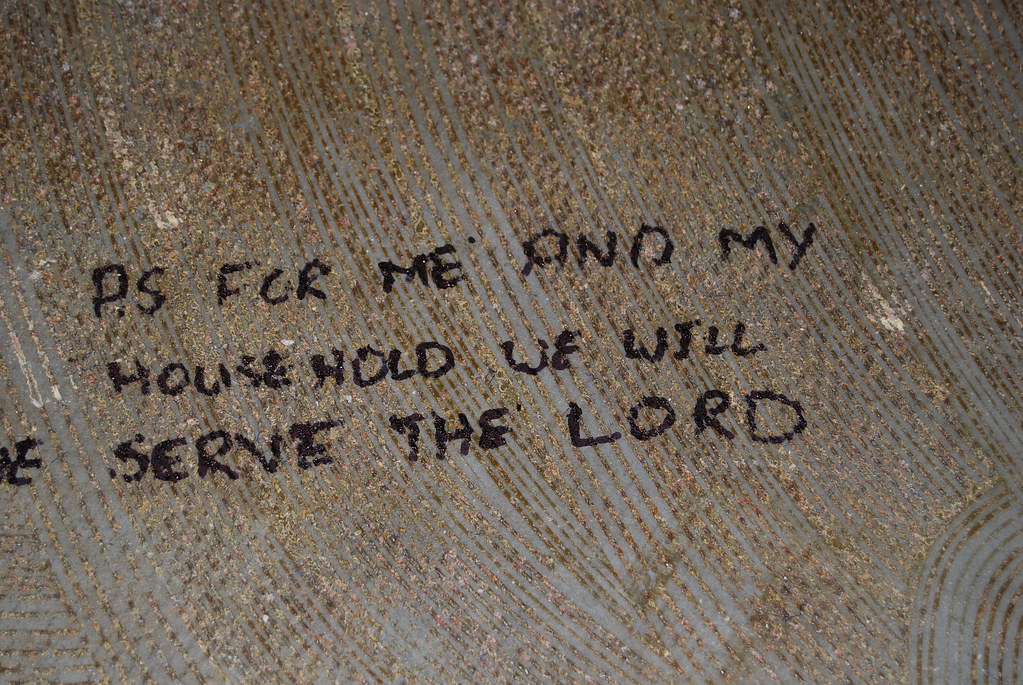 AS FOR ME AND MY
HOUSEHOLD WE WILL
SERVE THE LORD